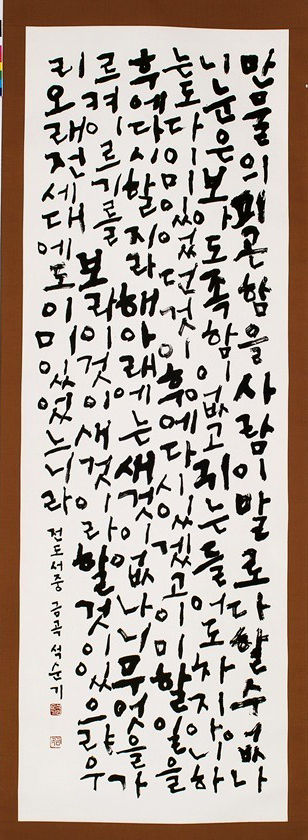 만물의피곤함을사람이말로다할수없나
니눈은보아도족함이없고귀는들어도차지아니하
는도다이미있었던것이후에다시있겠고이미할일을
후에다시할지라해아래에는새것이없나니무엇을가
르켜이르기를보라이것이새것이라할것이있으랴우
리오래전세대에도이미있었느니라 전도서중 금곡 석순기